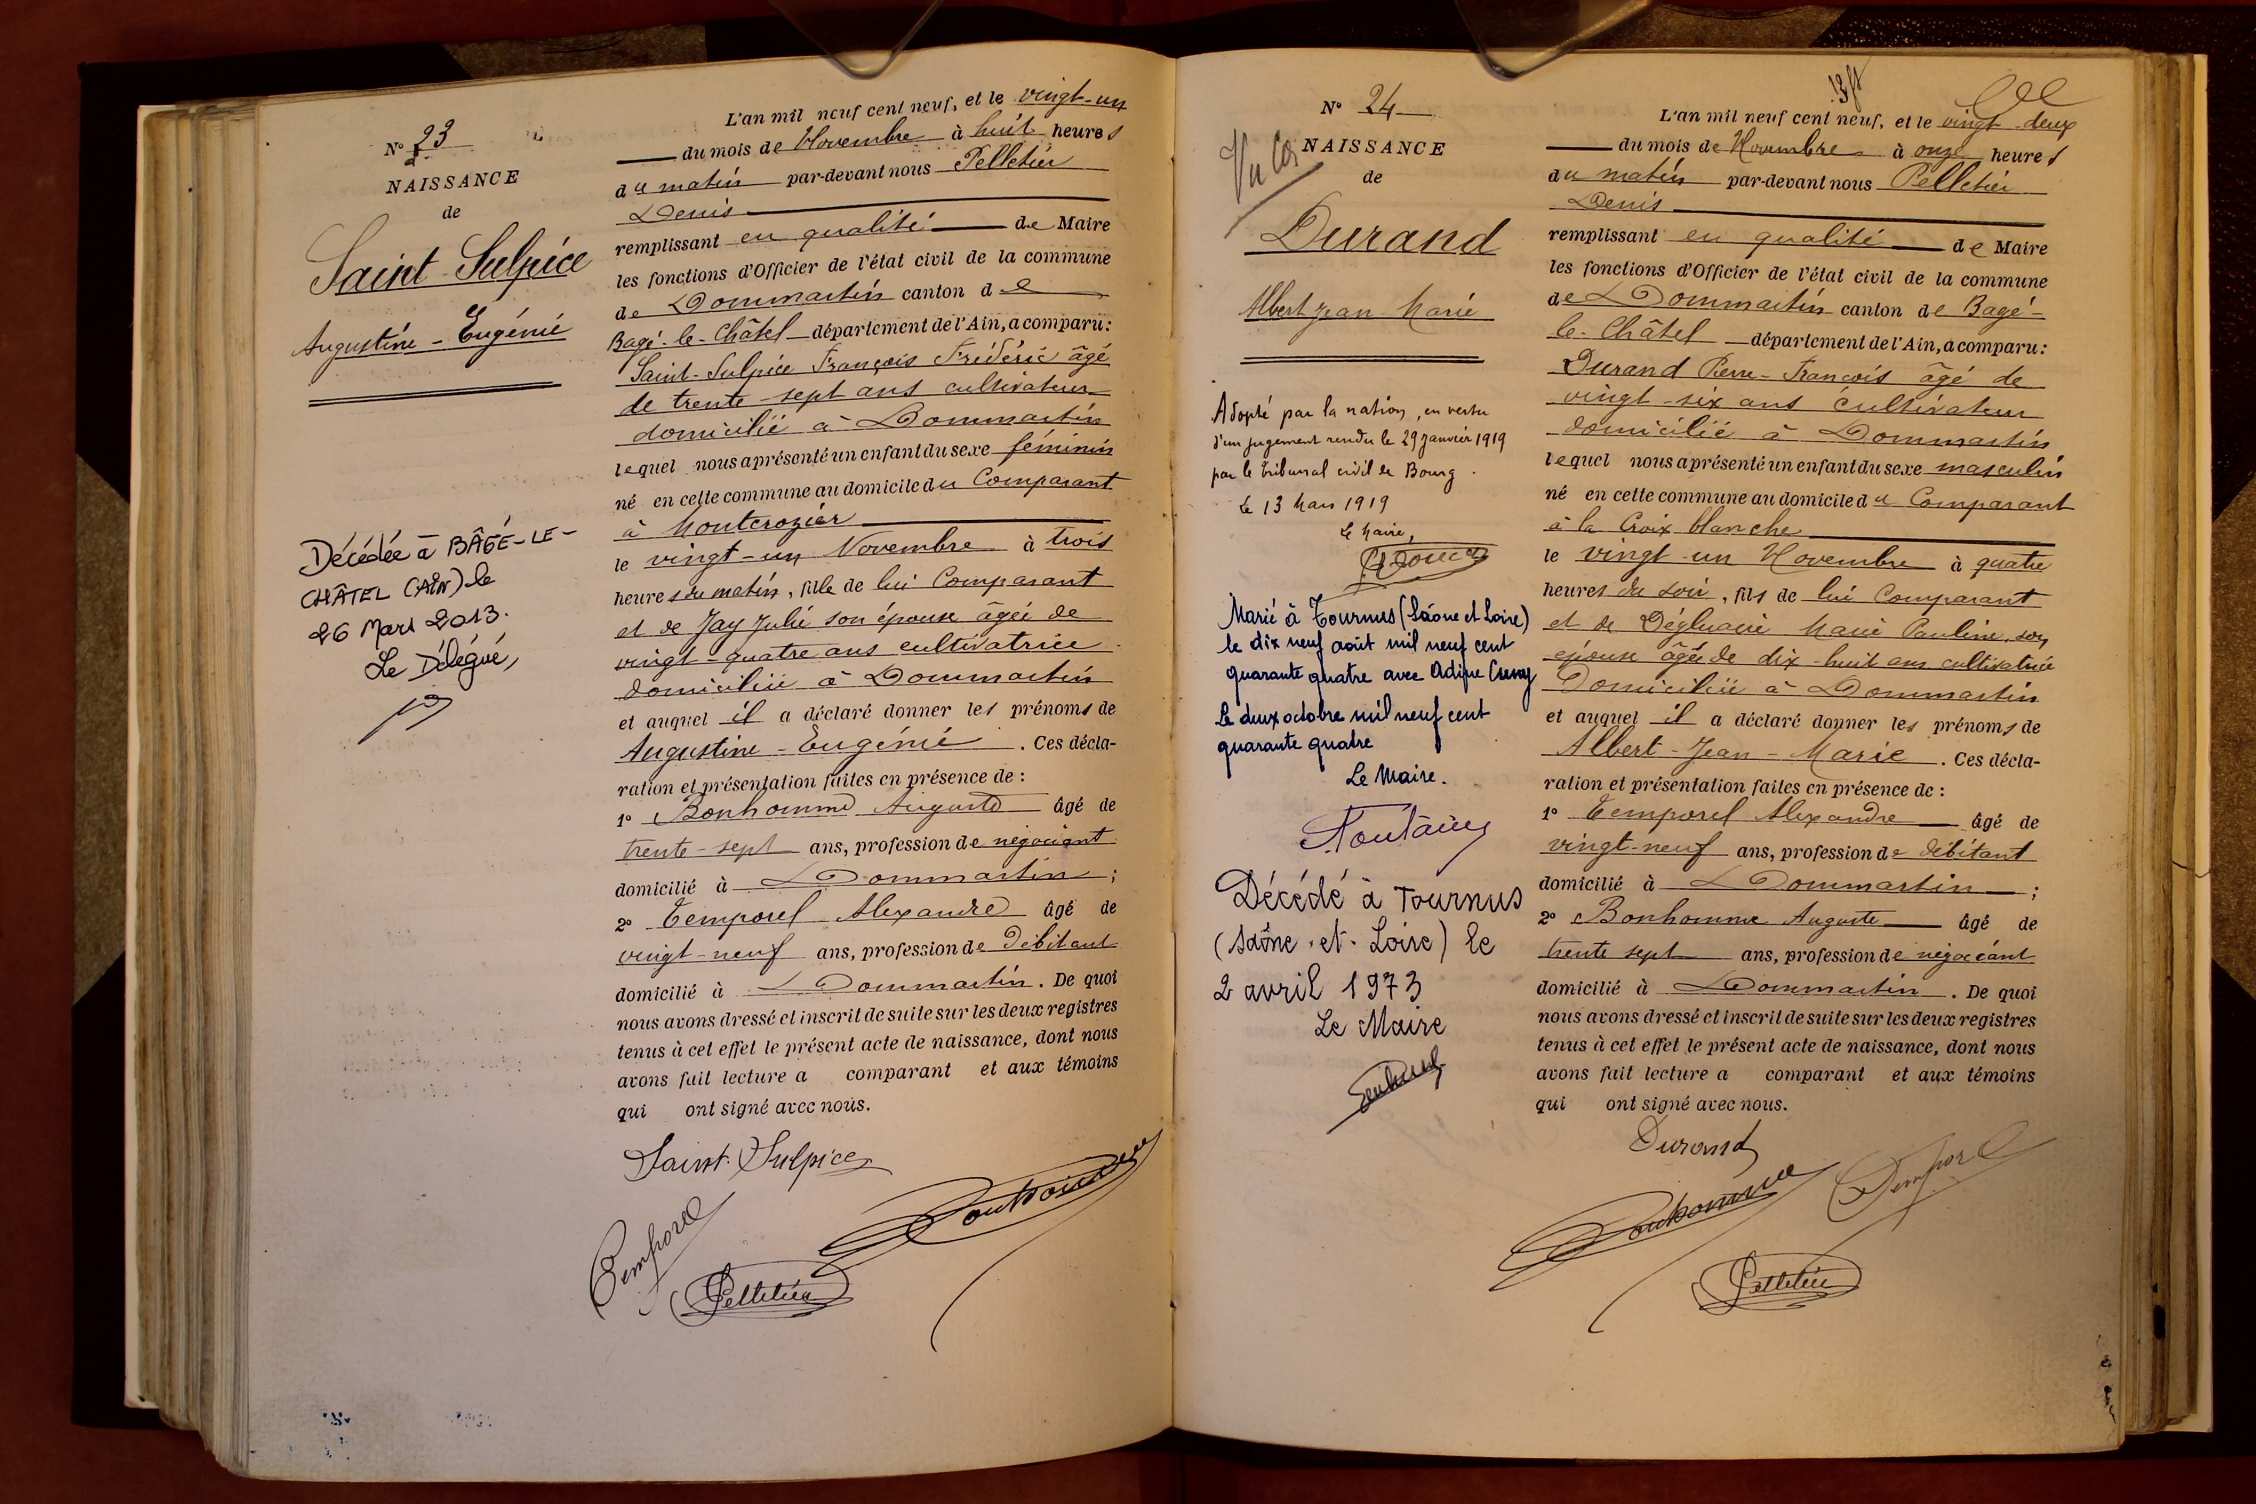 N° 23
NAISSANCE
de
Saint-Sulpice
Augustine-Eugénie
Décédée à BÂGÉ-LE-
CHÂTEL (AIN) le
26 Mars 2013.
Le Délégué,
L'an mil neuf cent neuf, et le vingt-un
du mois de Novembre à huit heures
du matin par-devant nous Pelletier
Denis
remplissant en qualité de Maire
les fonctions d'Officier de l'état civil de la commune
de Dommartin canton de
Bagé-le-Châtel département de l'Ain, a comparu:
Saint-Sulpice François Frédéric âgé
de trente-sept ans cultivateur
domicilié à Dommartin
lequel nous a présenté un enfant du sexe féminin
né en cette commune au domicile du Comparant
à Montcrozier
le vingt-un Novembre à trois
heures du matin, fille de lui Comparant
et de Jay Julie son épouse âgée de
vingt-quatre ans cultivatrice
domiciliée à Dommartin
et auquel il a déclaré donner les prénoms de
Augustine-Eugénie. Ces décla-
ration et présentation faites en présence de :
1° Bonhomme Auguste âgé de
trente-sept ans, profession de négociant
domicilié à Dommartin ;
2° Temporel Alexandre âgé de
vingt-neuf ans, profession de Débitant
domicilié à Dommartin. De quoi
nous avons dressé et inscrit de suite sur les deux registres
tenus à cet effet le présent acte de naissance, dont nous
avons fait lecture a comparant et aux témoins
qui ont signé avec nous.
Saint-Sulpice
Temporel
Bonhomme
Pelletier
N° 24
NAISSANCE
de
Durand
Albert Jean Marie
Adopté par la nation, en vertu
d'un jugement rendu le 29 janvier 1919
par le tribunal civil de Bourg.
le 13 Mars 1919
Le Maire,
Marié à Tournus (Saône et Loire)
le dix neuf août mil neuf cent
quarante quatre avec
le deux octobre mil neuf cent
quarante quatre
Le Maire.
Décédé à Tournus
(Saône-et-Loire) le
2 avril 1973
Le Maire
L'an mil neuf cent neuf, et le vingt-deux
du mois de Novembre à onze heures
du matin par-devant nous Pelletier
Denis
remplissant en qualité de Maire
les fonctions d'Officier de l'état civil de la commune
de Dommartin canton de Bagé-
le-Châtel département de l'Ain, a comparu:
Durand Pierre-François âgé de
vingt-six ans cultivateur
domicilié à Dommartin
lequel nous a présenté un enfant du sexe masculin
né en cette commune au domicile du Comparant
à la Croix blanche
le vingt-un Novembre à quatre
heures du soir, fils de lui Comparant
et de Marie Pauline, son
épouse âgée de dix-huit ans cultivatrice
Domiciliée à Dommartin
et auquel il a déclaré donner les prénoms de
Albert-Jean-Marie. Ces décla-
ration et présentation faites en présence de :
1° Temporel Alexandre âgé de
vingt-neuf ans, profession de débitant
domicilié à Dommartin ;
2° Bonhomme Auguste âgé de
trente sept ans, profession de négociant
domicilié à Dommartin. De quoi
nous avons dressé et inscrit de suite sur les deux registres
tenus à cet effet le présent acte de naissance, dont nous
avons fait lecture a comparant et aux témoins
qui ont signé avec nous.
Durand
Bonhomme
Temporel
Pelletier